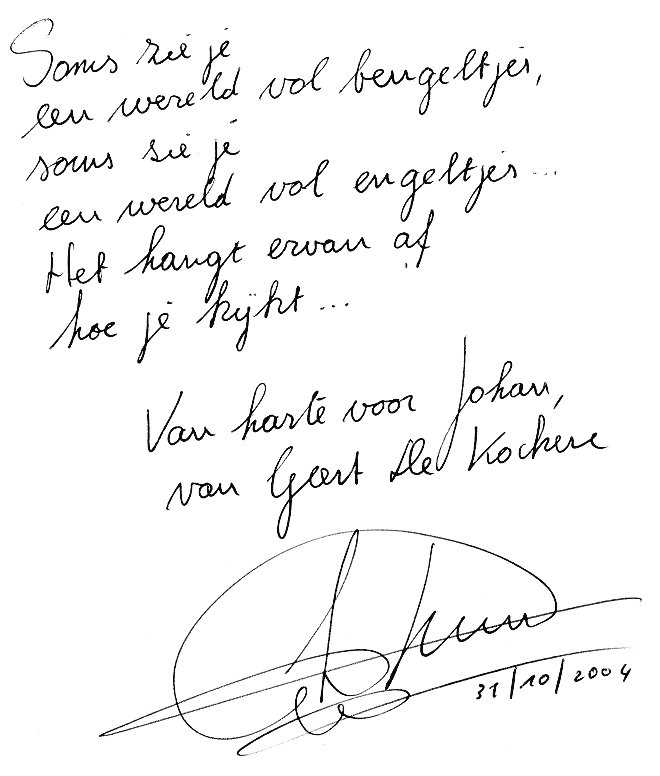 Soms zie je
een wereld vol bengeltjes,
soms zie je
een wereld vol engeltjes...
Het hangt ervan af
hoe je kijkt...
Van harte voor Johan,
van Geert De Kockere
31/10/2004